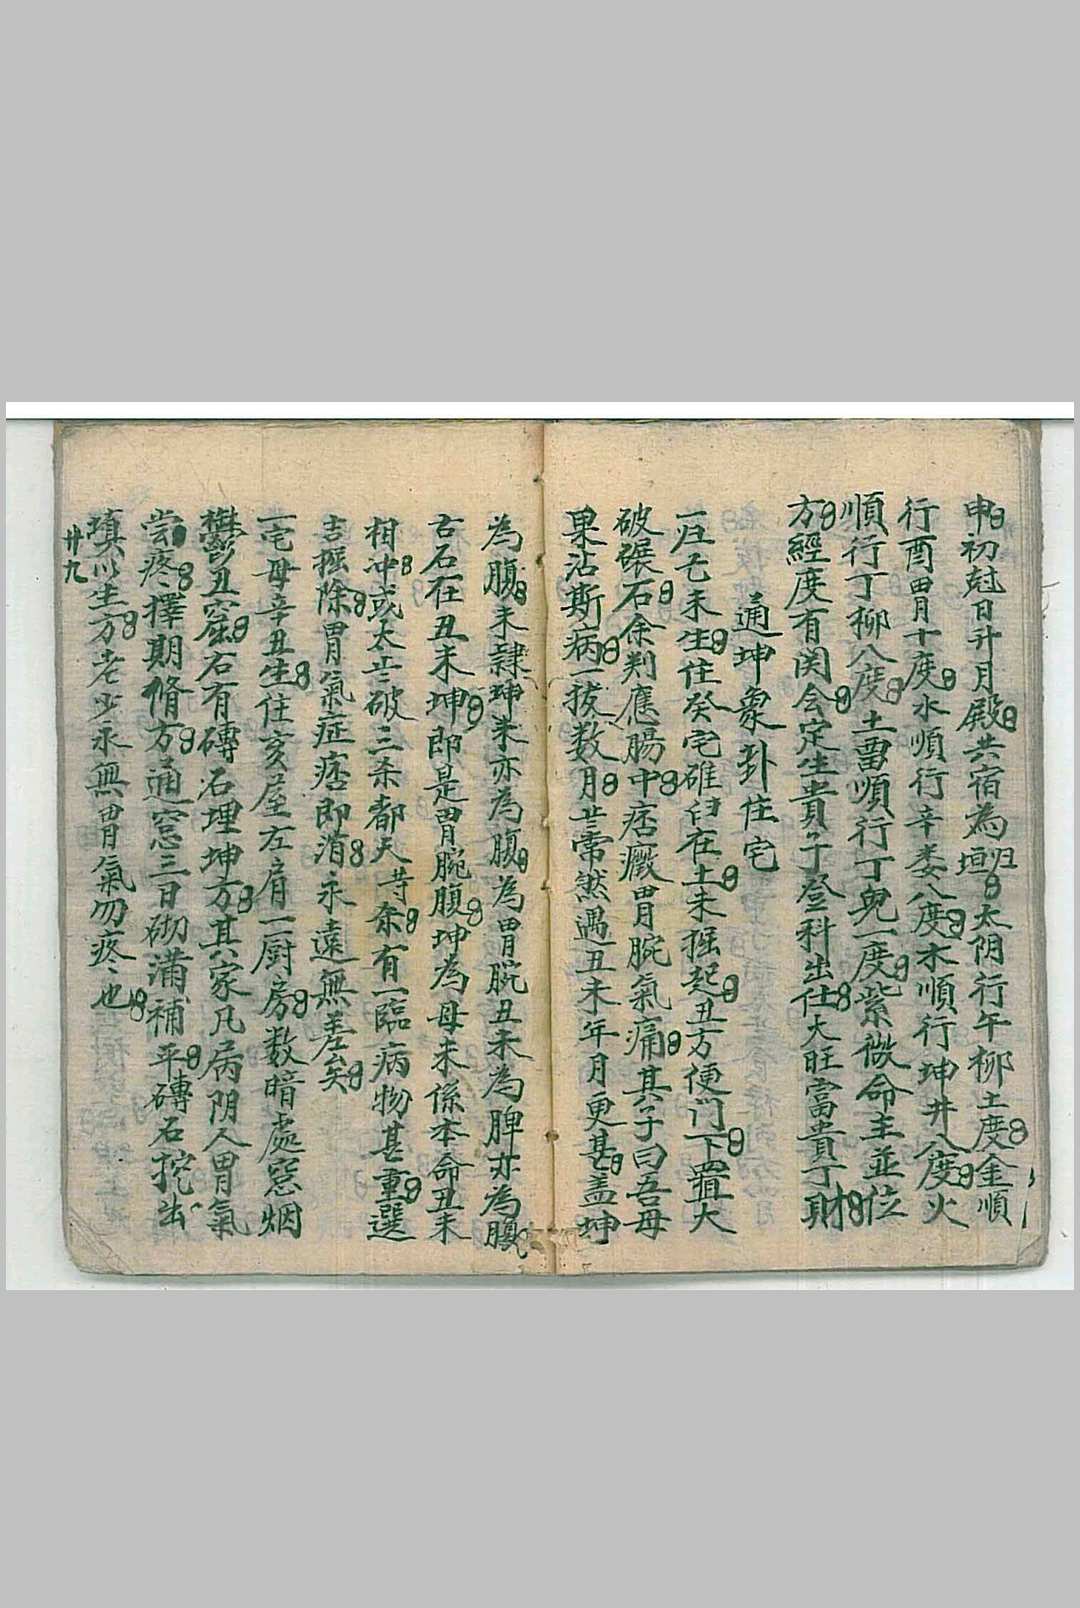 申初尅日升月殿共宿為归垣太阴行午柳土度金順
行酉畄月十度水順行辛娄八度木順行坤井八度火
順行丁柳八度土畄順行丁鬼一度紫微命主並位
方經度有関会定生貴子登科出仕大旺富貴丁財
通坤象卦住宅
一归乞未生住癸宅碓臼在土未掘起丑方便门下置大
破碾石余判應腸中痞癥胃腕氣痛其子曰吾母
果沾斯病一拔数月廿常然遇丑未年月更甚盖坤
為腹未隸坤未亦為腹為胃脘丑未為脾亦為腹
古石在丑未坤即是胃腕腹坤為母未係本命丑未
相冲或太歲破三杀都天等余有一臨病物甚重選
吉掘除胃氣症痞即消永遠無差矣
一宅母辛丑生住亥屋左肩一厨房数暗處窓烟
欝丑窟石有磚石埋坤方其家凡病阴人胃氣
常疼擇期脩方通窓三日砌满補平磚石挖出
填以生方老少永無胃氣勿疼疼也
廿九